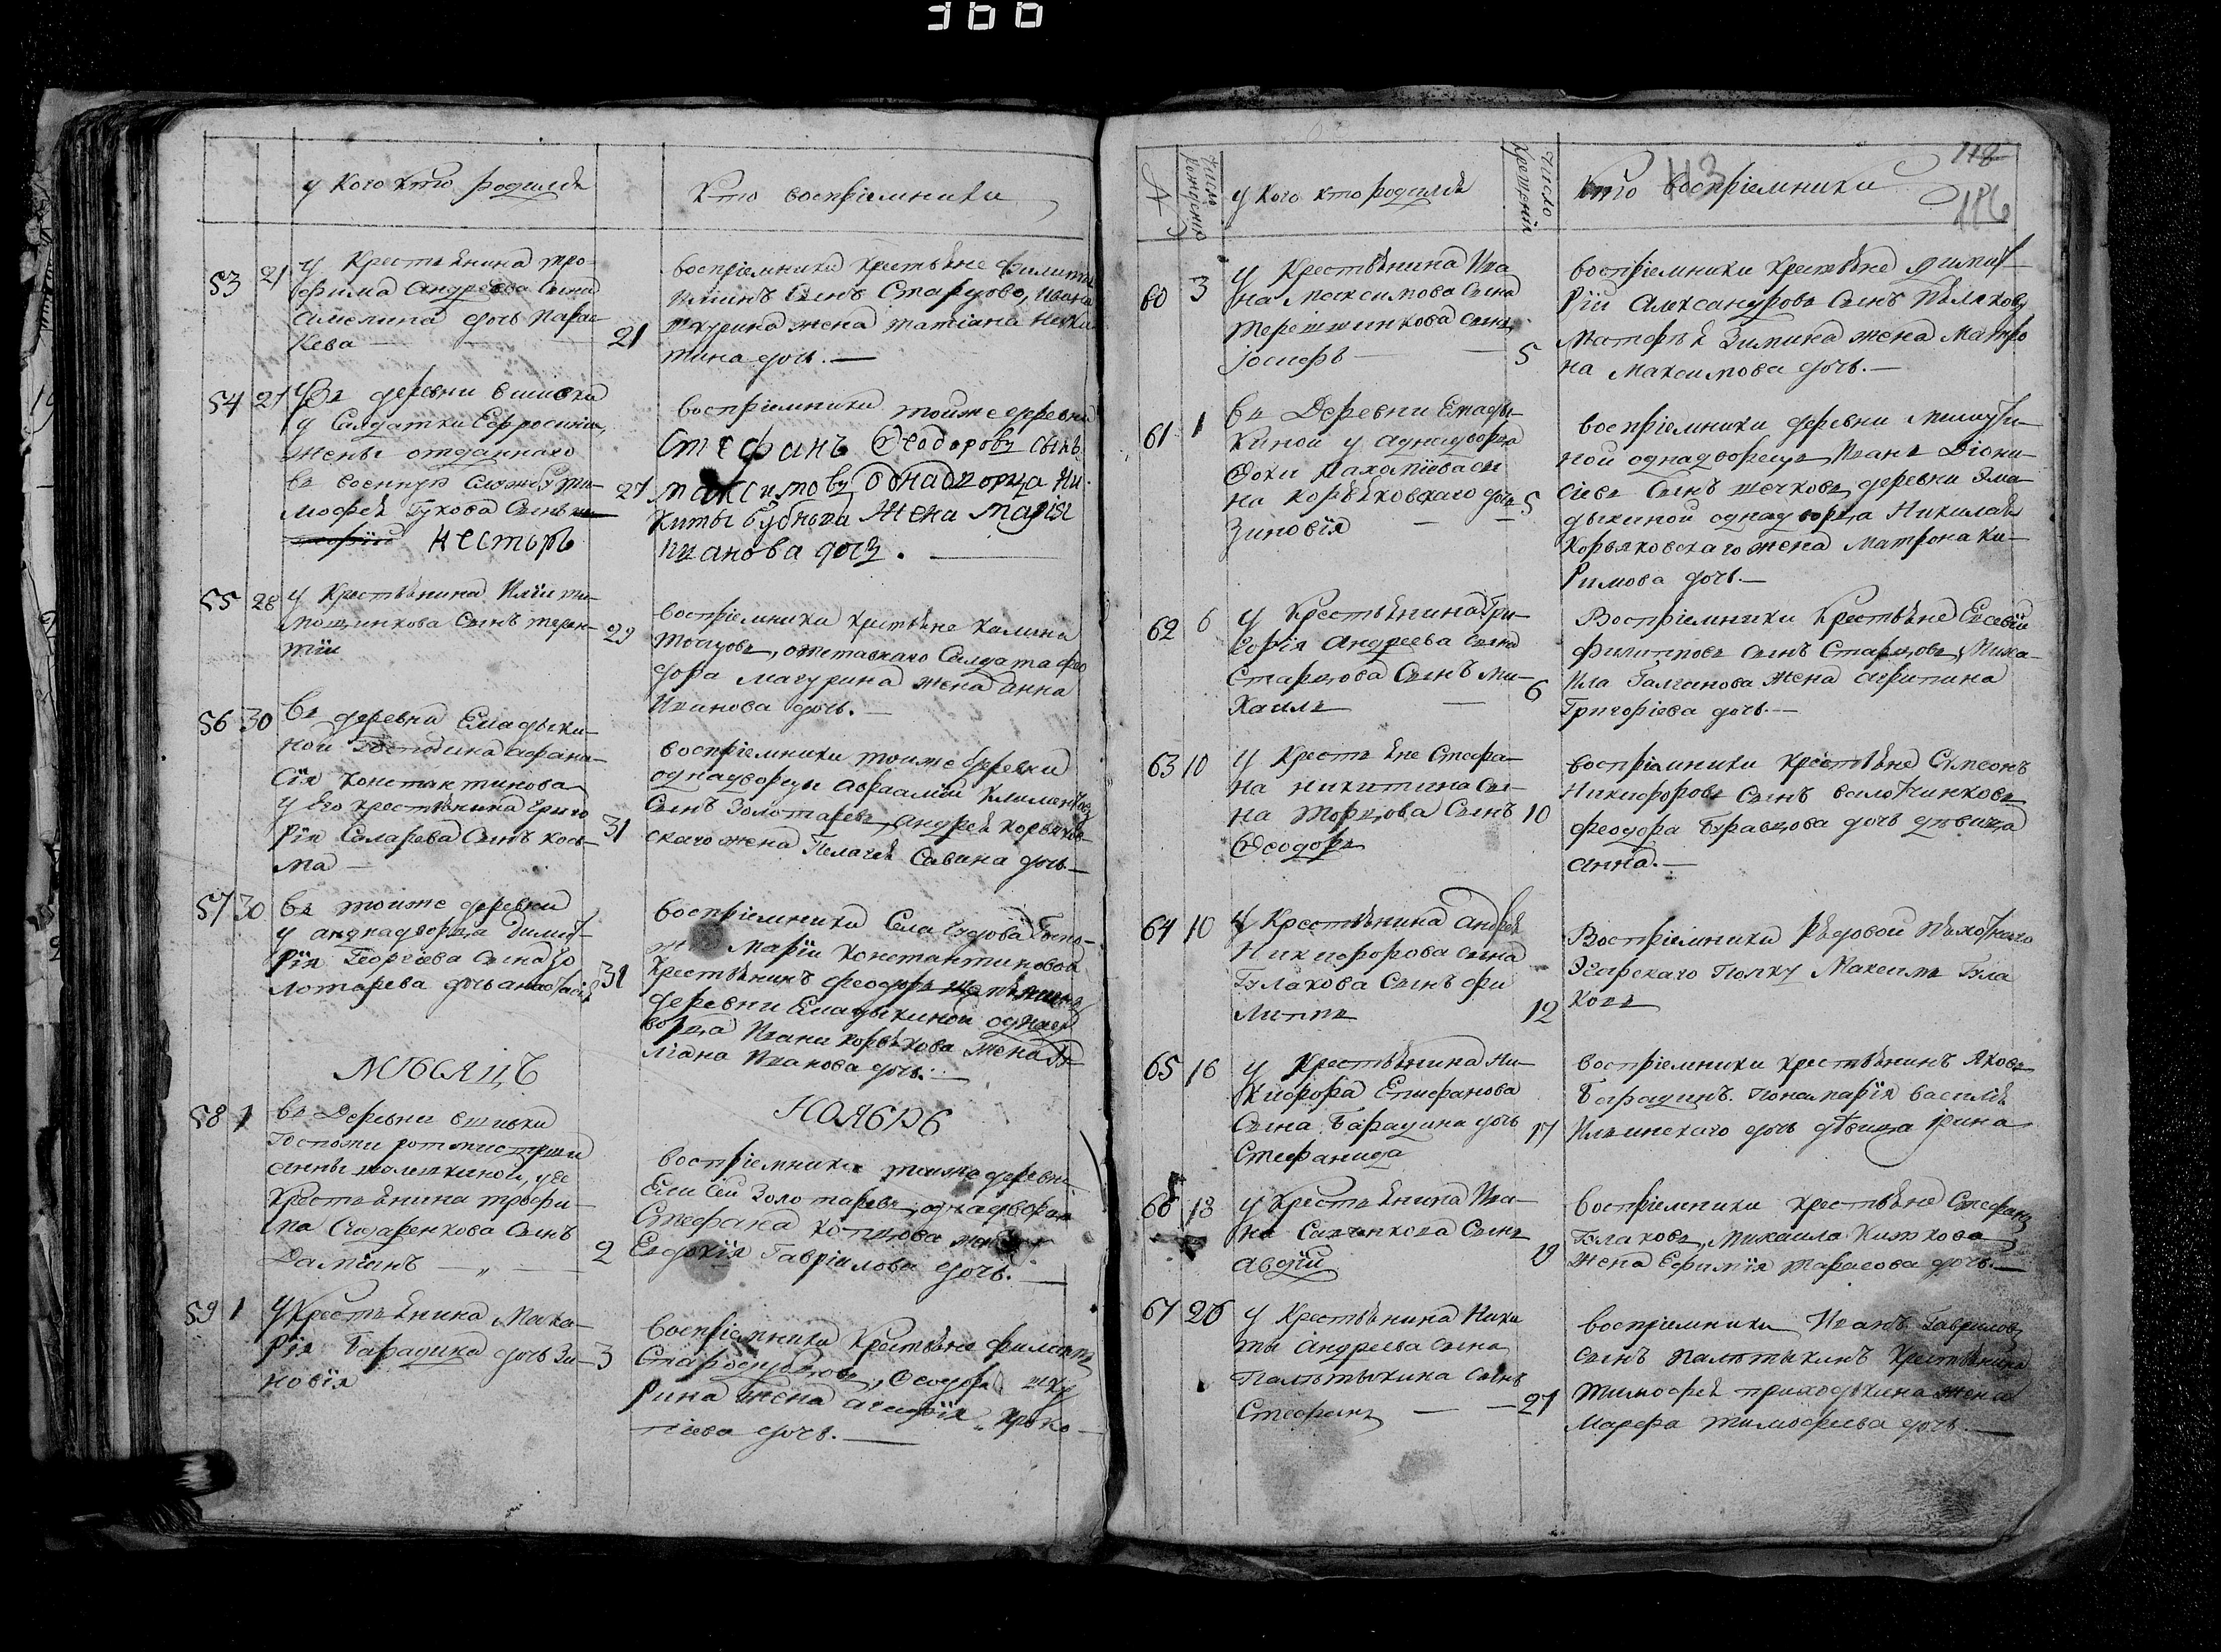 366
у Кого кто родился
Кто воспріемники
53 21 у Крестьянина тро-
фима Андреева сына
Амелина дочь парас-
кева —
21
воспріемники крестьяне филиппъ
сынъ Старцовъ, Ивана
жена татіана Ники-
тина дочь. —
54 27 Въ деревни
у Солдатки Ефросиніи,
жены отданнаго
въ военную службу ти-
мофея Гукова сынъ
Нестеръ
27
воспріемники тойже деревни
Стефанъ Ѳеодоровъ сынъ
Максимовъ однадворца Ни-
киты Бубнова жена Марія
Иванова дочь. —
55 28 у Крестьянина Иліи ти-
мощинкова сынъ терен-
тій
29
воспріемники крестьяне Калина
отставнаго Солдата фео
дора Мачурина жена Анна
Иванова дочь. —
56 30 въ деревни Еладыки-
ной Господина Афана-
сія Константинова
у его крестьянина григо
рія Селарева сынъ кось-
ма —
31
воспріемники тоиже деревни
однадворцы Авраамій Климентовъ
сынъ Золотаревъ, Андрея Корьяков-
скаго жена Пелагея Савина дочь —
57 30 въ тоиже деревни
у аднадворца димит-
рія Георгіева сына Зо
лотарева дочь анастасія
31
воспріемники Села Госпо-
жи Маріи Константиновой
Крестьянинъ феодоръ
деревни Еладыкиной однад
ворца Ивана Корьякова жена
Иванова дочь. —
МѢСЯЦЪ
НОЯБРЬ
58 1 въ Деревни
Госпожи ротмистрши
анны, у ее
Крестьянина трофи-
ма Сидаренкова сынъ
Даміанъ — „ —
2
воспріемники тоиже деревни
Елисей Золотаревъ, однадворца
Стефана жена
Евдокія Гавріилова дочь. —
59 1 у Крестьянина Мака-
рія Барадина дочь Зи-
новія
3
воспріемники Крестьяне филиппъ
Старосупцовъ, Ѳеодора шку
рина жена агафія Проко-
піева дочь. —
118
113
186
№
число рожденія
у Кого кто родился
число крещенія
Кто воспріемники
60 3 у Крестьянина Ива
на Максимова сына
терещинкова сынъ
іосифъ —
5
воспріемники крестьяне димит-
рій Александровъ сынъ Поляковъ
Матфея Зимина жена Матро
на Максимова дочь. —
61 1 въ Деревни Елады-
киной у аднадворца
Фоки Пахоміева сы
на Корьяковскаго дочь
Зиновія —
5
воспріемники деревни
ной однадворецъ Иванъ Діони-
сіевъ сынъ деревни Ела-
дыкиной однадворца Николая
Корьяковскаго жена Матрона Ки-
римова дочь. —
62 6 у Крестьянина Гри-
горія Андреева сына
Старцова сынъ Ми-
хаилъ —
6
Воспріемники Крестьяне Евсевій
филипповъ сынъ Старцовъ, Миха-
ила Галчанова жена агрипина
Григоріева дочь. —
63 10 у Крестьяне Стефа-
на никитина сы-
на Морцова сынъ
Ѳеодоръ
10
воспріемники крестьяне Симеонъ
Никифоровъ сынъ
феодора Буравцова дочь дѣвица
анна. —
64 10 у Крестьянина Андрея
Никифорова сына
Булахова сынъ фи
липпъ
12
Воспріемники Рядовой пѣхотнаго
Эгарскаго Полку Максимъ Була
ховъ
65 16 у Крестьянина Ни-
кифора Епифанова
сына Барадина дочь
Стефанида
17
воспріемники крестьянинъ Яковъ
Барадинъ. Понамарія василія
Ильинскаго дочь дѣвица ірина
66 18 у Крестьянина Ива-
на Савенкова сынъ
авдій
19
воспріемники крестьяне Стефанъ
Булаховъ, Михаила
жена Ефимія тарасова дочь. —
67 26 у Крестьянина Ники
ты Андреева сына
Палятыкина сынъ
Стефанъ — —
27
воспріемники Иванъ Гавриловъ
сынъ Палятыкинъ Крестьянина
Тимофея приходькина жена
Марфа тимофеева дочь —